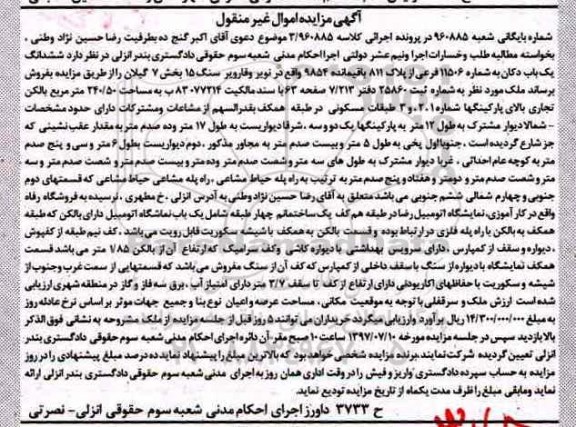 آگهی مزایده اموال غیر منقول
شماره بایگانی شعبه ۹۶۰۸۸۵ در پرونده اجرائی کلاسه ۳/۹۶۰۸۸۵ موضوع دعوی آقای اکبر گنج ده بطرفیت رضا حسین نژاد وطنی ،
بخواسته مطالبه طلب و خسارات اجرا و نیم عشر دولتی اجرا احکام مدنی شعبه سوم حقوقی دادگستری بندر انزلی در نظر دارد ششدانگ
یک باب دکان به شماره ۱۱۵۰۶ فرعی از پلاک ۸۱۱ باقیمانده ۹۸۵۴ واقع در تویر وقارویر سنگ ۱۵ بخش ۷ گیلان را از طریق مزایده بفروش
برساند ملک مورد نظر به شماره ثبت ۲۵۸۶۰ دفتر ۷/۲۱۳ صفحه ۶۳ با سند مالکیت ۸۳۰۷۷۲۱۴ ب به مساحت ۲۴۰/۵۰ متر مربع بالکن
تجاری بالای پارکینگها شماره ۱،۲ و ۳ طبقات مسکونی در طبقه همکف بقدرالسهم از مشاعات ومشترکات دارای حدود مشخصات
– شمالا دیوار مشترک به طول ۱۲ متر به پارکینگها یک دو و سه ،شرقا دیواریست به طول ۱۷ متر وده صدم متر به مقدار عقب نشینی که
جز شارع گردیده است . جنوبا اول پخی به طول ۵ متر و بیست صدم متر به مجاور مذکور . دوم دیواریست بطول ۶ متر و سی و پنج صدم
متر به کوچه عام احداثی . غربا دیوار مشترک به طول های سه متر و شصت صدم متر وده متر و بیست صدم متر و شصت صدم متر و سه
متر و شصت صدم متر و دومتر و هفتاد و پنج صدم متر به ترتیب به راه پله مشاعی . راه پله مشاعی حیاط مشاعی که قسمتهای دوم
جنوبی و چهارم شمالی ششم جنوبی می باشد متعلق به آقای رضا حسین نژاد وطنی به آدرس انزلی . خ مطهری . نرسیده به فروشگاه رفاه
واقع در کار آموزی، نمایشگاه اتومبیل رضا در طبقه هم کف یک ساختمانم چهار طبقه شامل یک باب نمایشگاه اتومبیل دارای بالکن که طبقه
همکف به بالکن با راه پله فلزی در ارتباط بوده و قسمت بالکن به همکف با شیشه سکوریت قابل رویت می باشد . کف نیم طبقه از کفپوش
. دیواره و سقف از کمپارس . دارای سرویس بهداشتی با دیواره کاشی وکف سرامیک که ارتفاع آن از بالکن ۱/۸۵ متر می باشد قسمت
همکف نمایشگاه با دیواره از سنگ با سقف داخلی از کمپارس که کف آن از سنگ مفروش می باشد که قسمتهایی از سمت غرب وجنوب از
شیشه و سکوریت با حفاظهای اکاریودئی دارای ارتفاع از کف تا سقف ۳/۷ متر دارای امتیاز آب . برق سه فاز و گاز در منطقه شهری ارزیابی
شده است ارزش ملک و سرقفلی با توجه به موقعیت مکانی . مساحت عرصه واعیان نوع بنا و جمیع جهات موثر بر اساس نرخ عادله روز
به مبلغ ۱۴/۳۰۰/۰۰۰/۰۰۰ ریال برآورد وارزیابی میگردد خریداران می توانند ۵ روز قبل از جلسه مزایده از ملک مشروحه به نشانی فوق الذکر
بالا بازدید سپس در جلسه مزایده مورخه ۱۳۹۷/۰۷/۱۰ ساعت ۱۰ صبح مقرر آن دائره اجرای احکام مدنی شعبه سوم حقوقی دادگستری بندر
انزلی تعیین گردیده شرکت نمایند. برنده مزایده شخصی خواهد بود که بالاترین مبلغ را پیشنهاد نماید ده درصد مبلغ پیشنهادی را در روز
مزایده به حساب سپرده دادگستری واریز و فیش را در وقت اداری همان روز به اجرای مدنی شعبه سوم حقوقی دادگستری بندر انزلی ارائه
نماید ومابقی مبلغ را ظرف مدت یکماه از تاریخ مزایده تودیع نماید.
ح ۳۷۳۳ داورز اجرای احکام مدنی شعبه سوم حقوقی انزلی- نصرتی